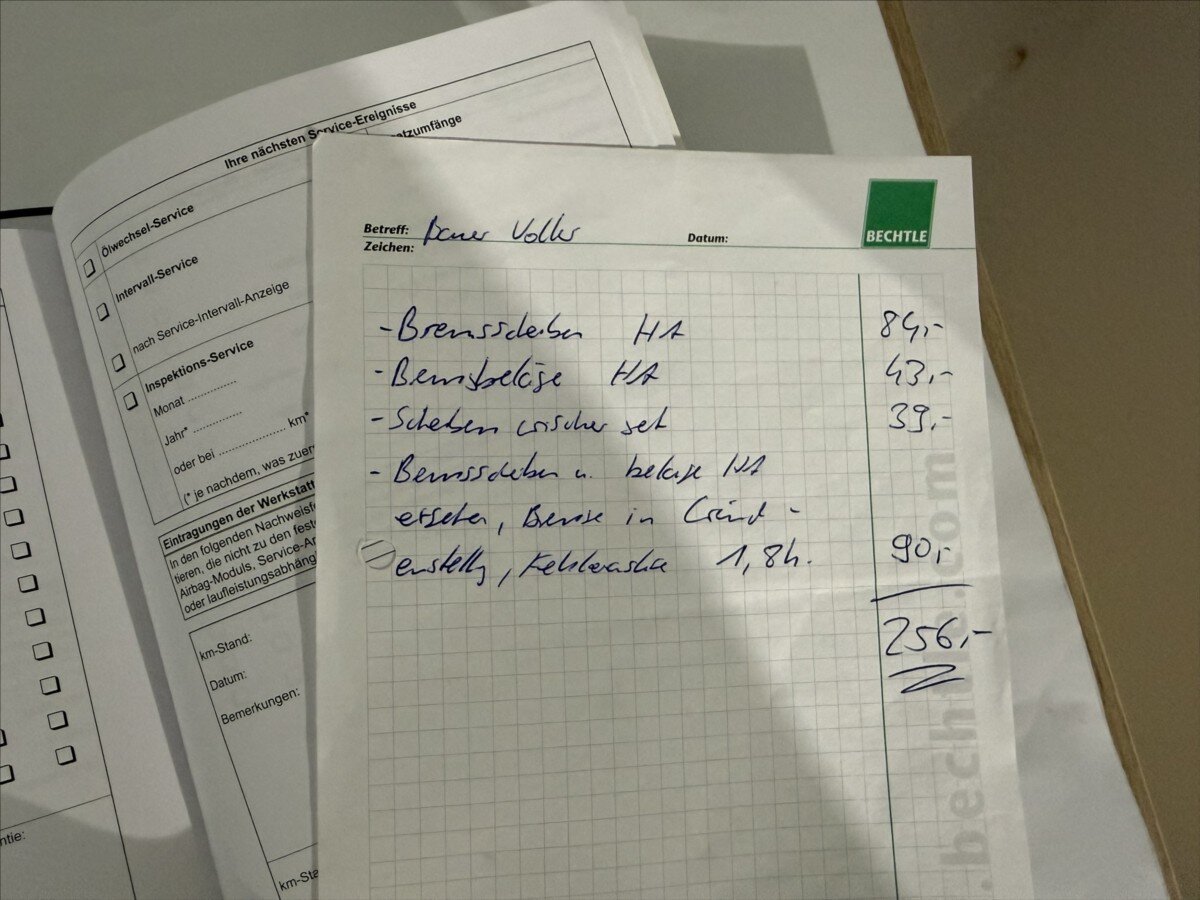 Ihre nächsten Service-Ereignisse
satzumfänge
Ölwechsel-Service
Intervall-Service
nach Service-Intervall-Anzeige
Inspektions-Service
Monat ..............
Jahr* ..............
oder bei ........................ km*
(* je nachdem, was zuer
Eintragungen der Werkstatt
In den folgenden Nachweisfe
tieren, die nicht zu den feste
Airbag-Moduls, Service-Ar
oder laufleistungsabhäng
km-Stand:
Datum:
Bemerkungen:
km-Sta
ntie:
BECHTLE
Betreff: Volker
Datum:
Zeichen:
- Bremsscheiben HA 84,-
- Bremsbeläge HA 43,-
- Scheibenwischer set 39,-
- Bremsscheiben u. beläge HA
ersetzen, Bremse in Grund-
einstellg, 1,8h. 90,-
256,-
.bechtle.com